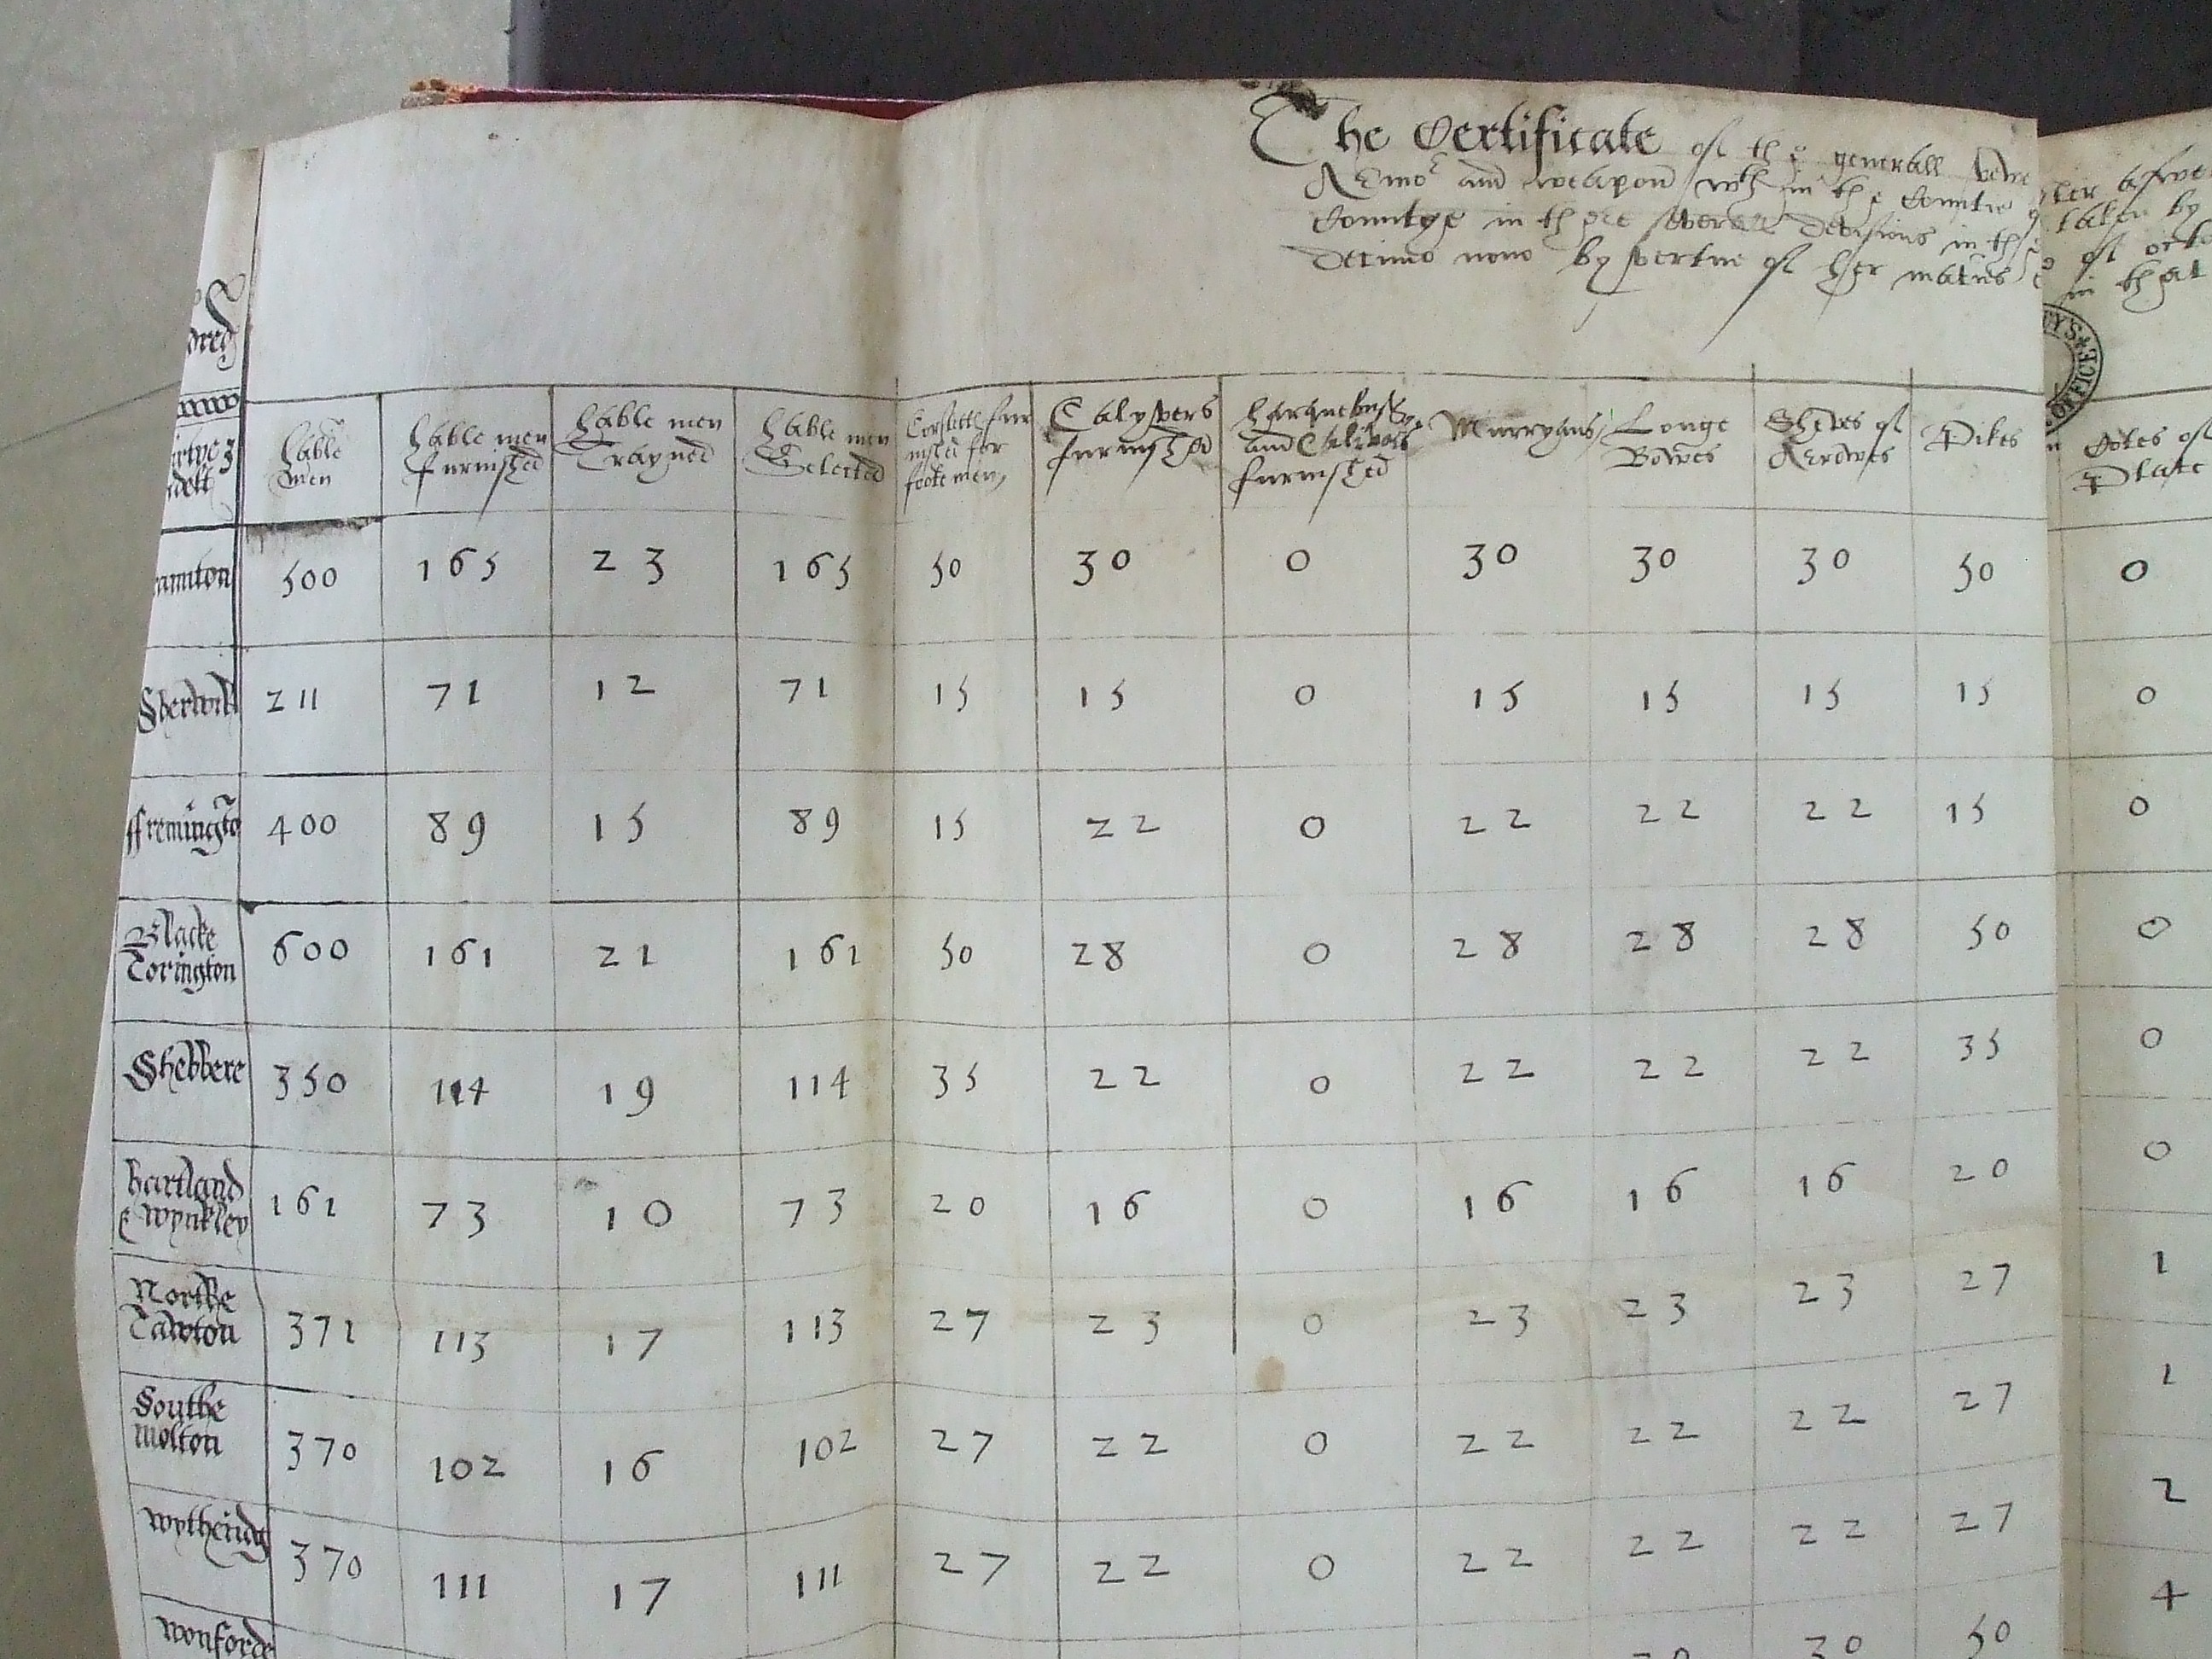 The Certificate of the generall
Armor and weapon wthin the Countie
Countye in three severall devisions in th
Decimo nono by vertue of her maties
taken by
of octo
in that
dred
Hable men
Hable men furnished
Hable men Trayned
Hable men Selected
Corslettes furnished for footemen
Calyvers furnished
Harquebuss and Calivers furnished
Murryans
Longe Bowes
Sheves of Arrowes
Pikes
Cotes of Plate
500 165 23 165 50 30 0 30 30 30 50 0
Sherwill 211 71 12 71 15 15 0 15 15 15 15 0
ffremingto 400 89 15 89 15 22 0 22 22 22 15 0
Blacke Torington 600 161 21 161 50 28 0 28 28 28 50 0
Shebbere 350 114 19 114 35 22 0 22 22 22 35 0
Hartland & Wynkley 161 73 10 73 20 16 0 16 16 16 20 0
Northe Tawton 371 113 17 113 27 23 0 23 23 23 27 1
Southe molton 370 102 16 102 27 22 0 22 22 22 27 1
Wytheridg 370 111 17 111 27 22 0 22 22 22 27 2
Wonforde 30 50 4